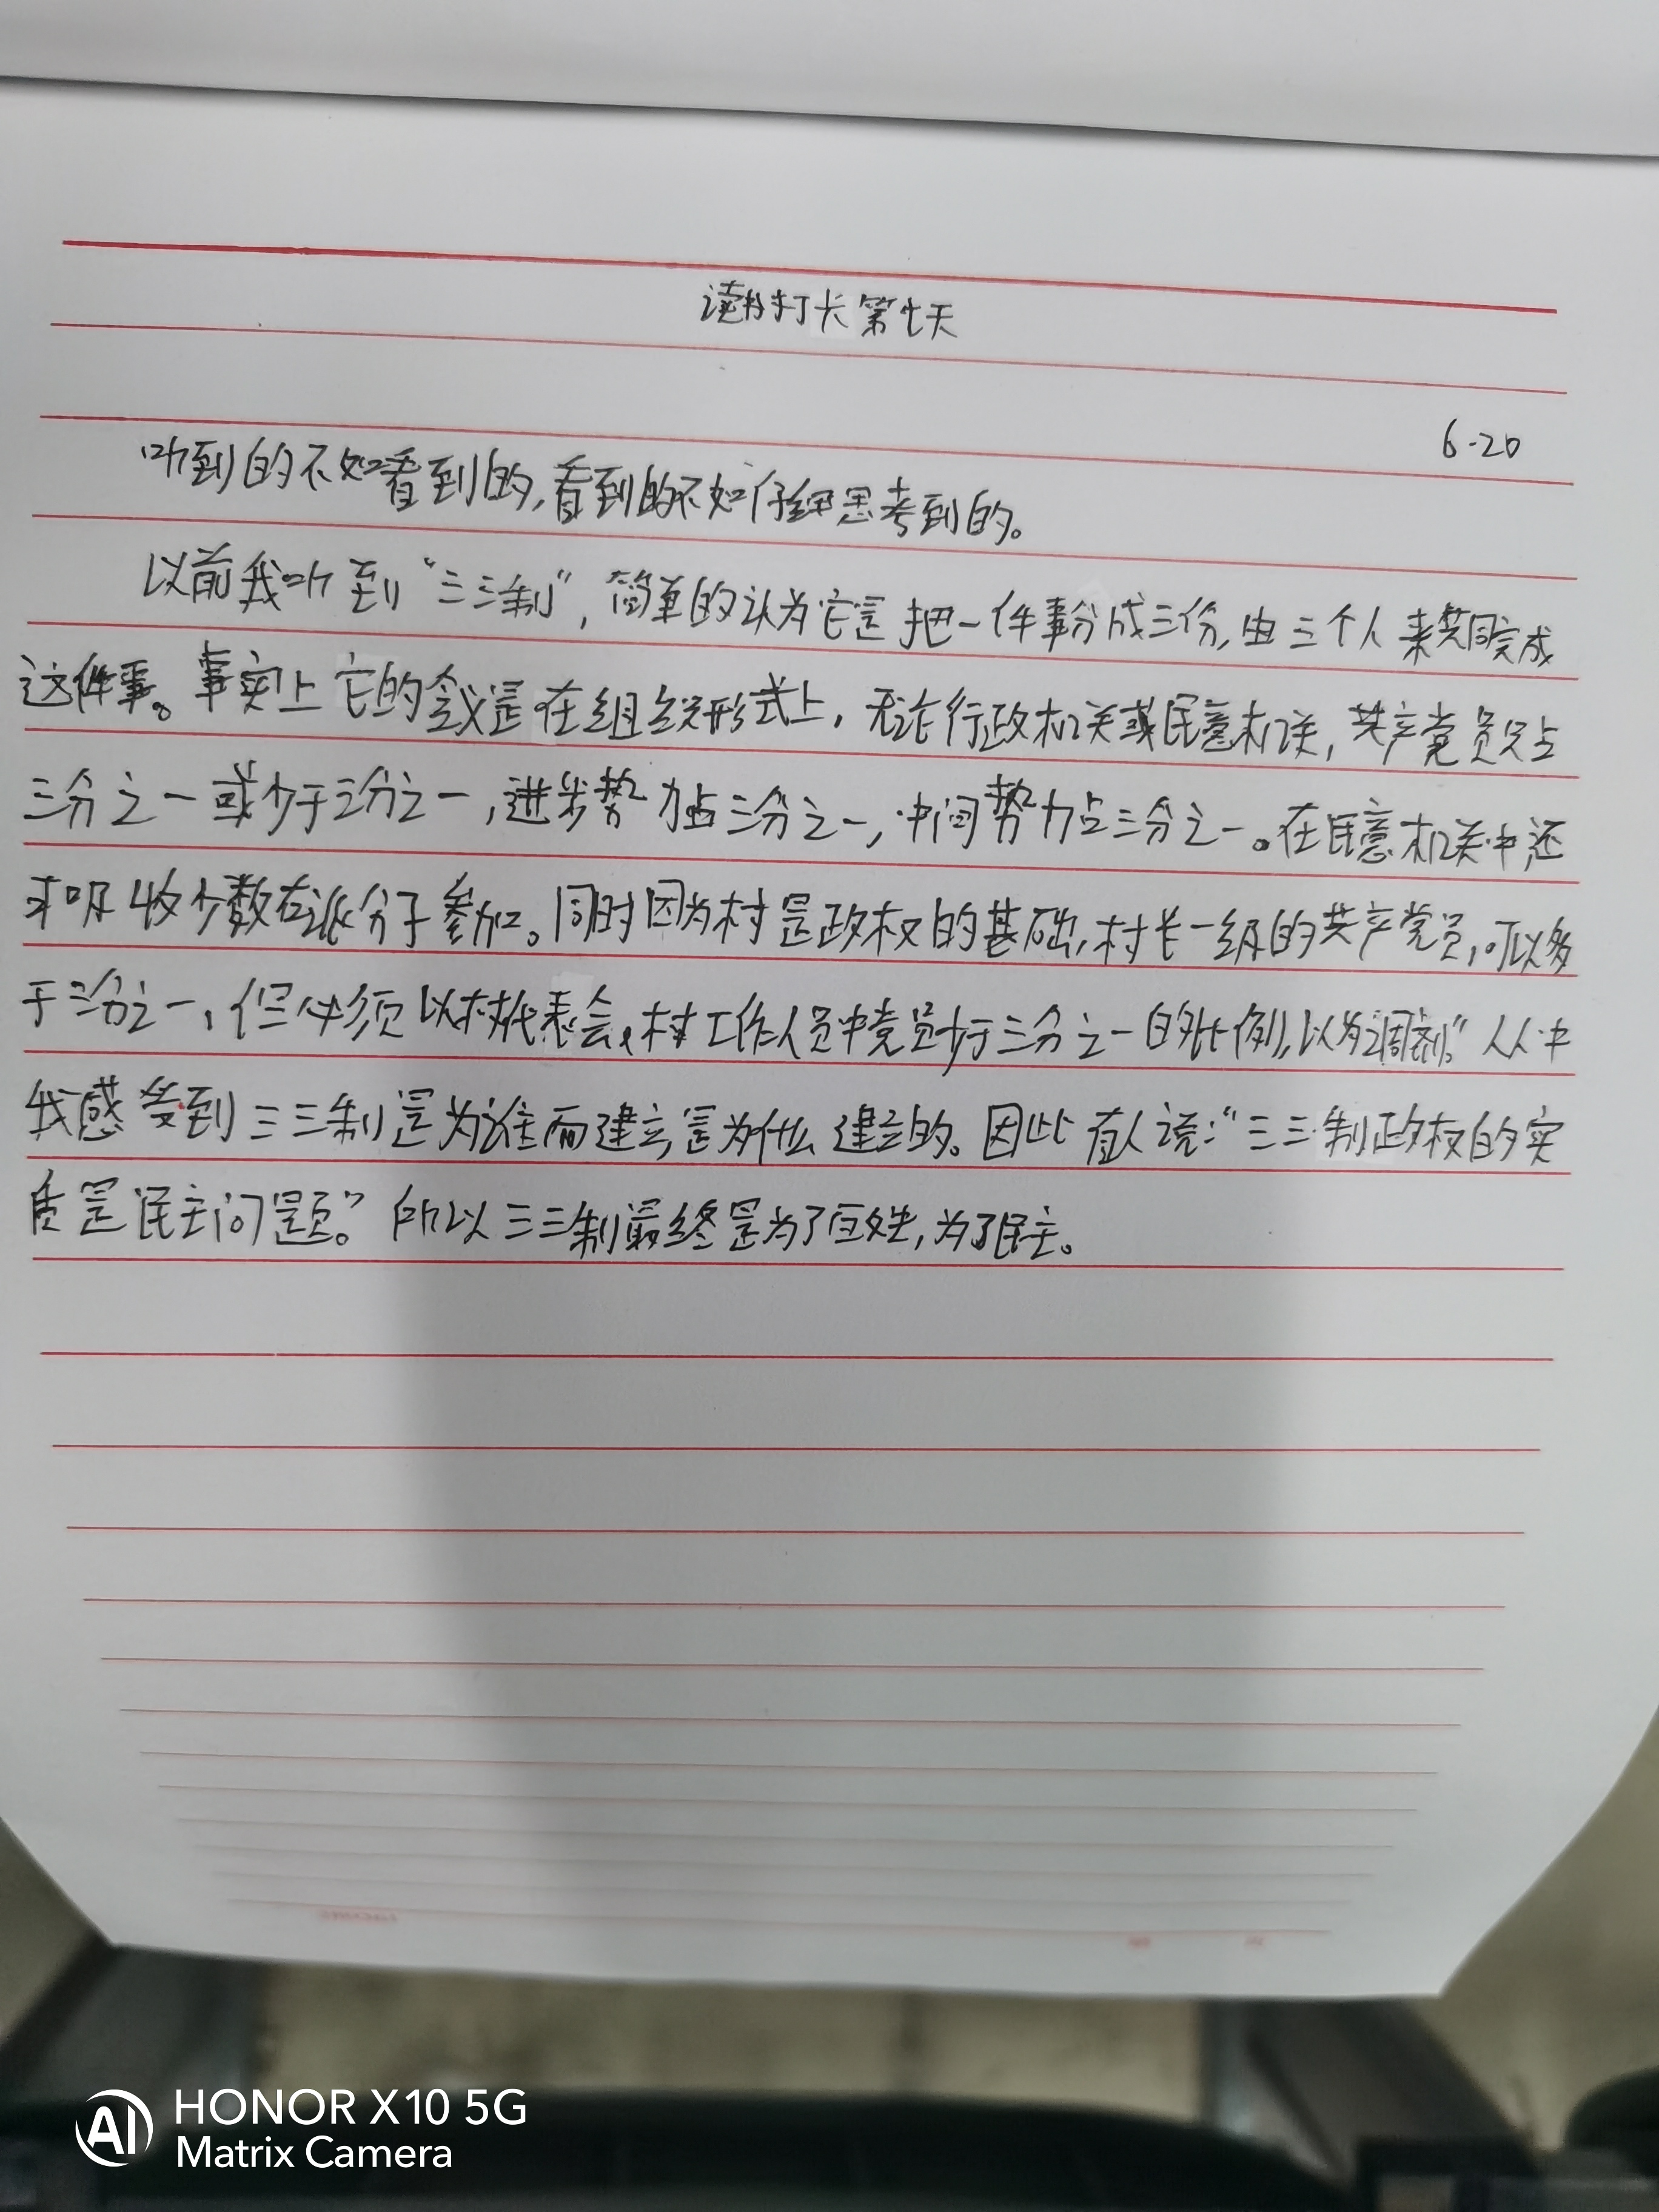 读书打卡第七天
6-20
听到的不如看到的,看到的不如仔细思考到的。
以前我听到“三三制”,简单的认为它是把一件事分成三份,由三个人来共同完成
这件事。事实上它的含义是在组织形式上,无论行政机关或民意机关,共产党员只占
三分之一或少于三分之一,进步势力占三分之一,中间势力占三分之一。在民意机关中还
才吸收少数右派分子参加。同时因为村是政权的基础,村长一级的共产党员,可以多
于三分之一,但必须以村代表会、村工作人员中党员少于三分之一的比例,以为调剂。”从中
我感受到三三制是为谁而建立,是为什么建立的。因此有人说:“三三制政权的实
质是民主问题。”所以三三制最终是为了百姓,为了民主。
AI HONOR X10 5G
Matrix Camera